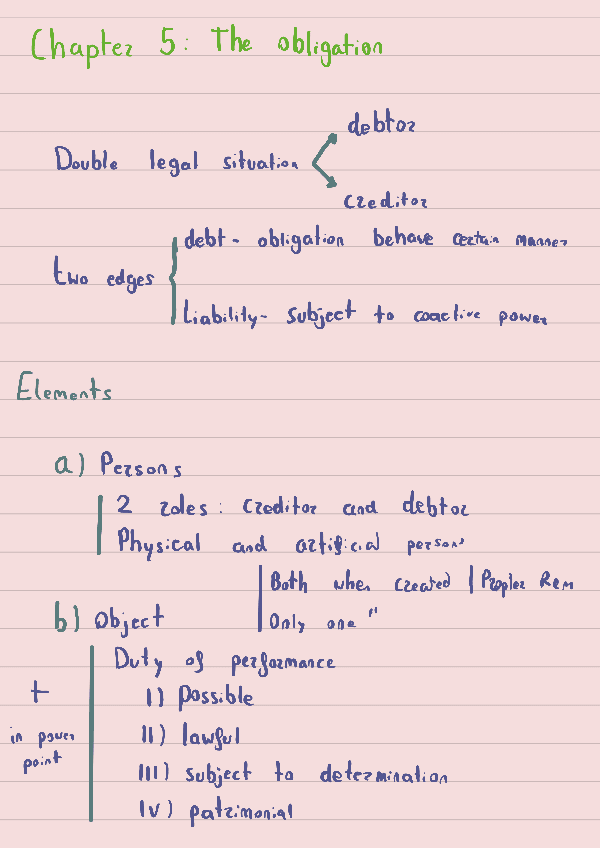 Chapter 5: The obligation
debtor
Double legal situation
creditor
debt - obligation behave certain manner
two edges
Liability - subject to coactive power
Elements
a) Persons
2 roles: creditor and debtor
Physical and artificial persons
Both when created | Propter Rem
Only one "
b) Object
Duty of performance
+
in power
point
I) possible
II) lawful
III) subject to determination
IV) patrimonial